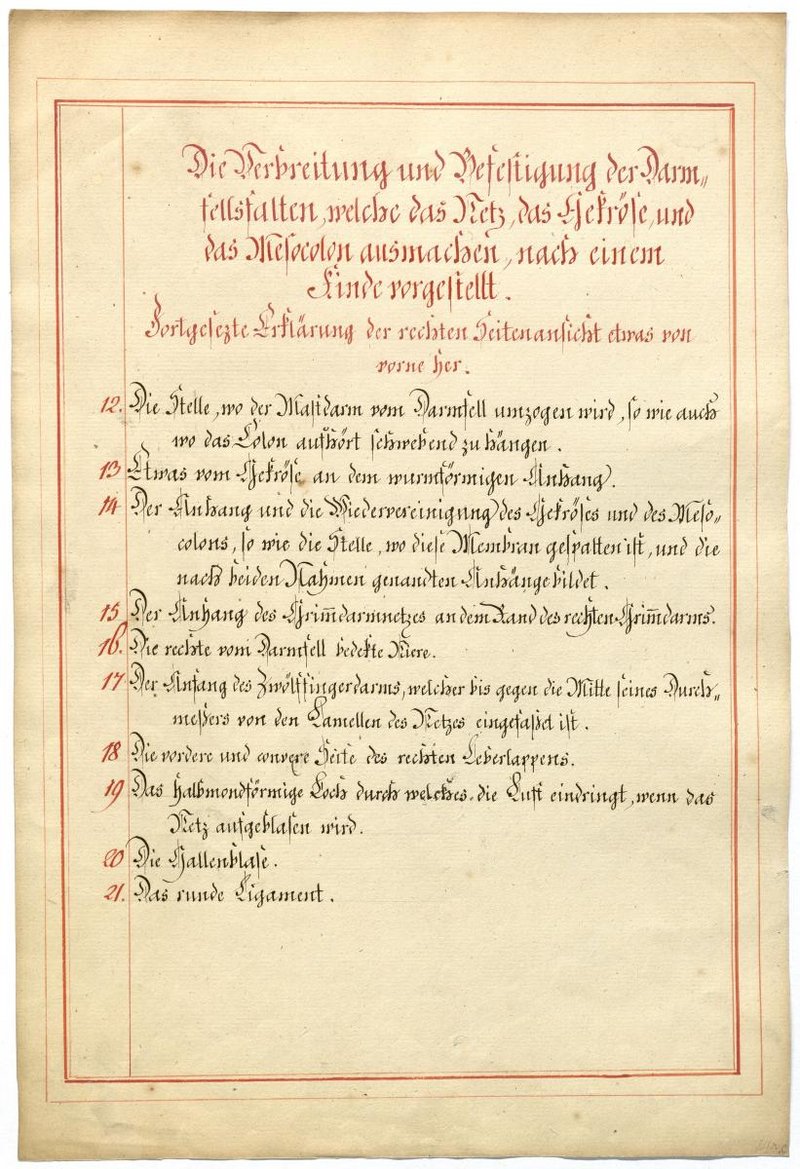 Die Verbreitung und Befestigung der Darm„
fellsfalten, welche das Netz, das Gekröse, und
das Mesocolon ausmachen, nach einem
Kinde vorgestellt.
Fortgesezte Erklärung der rechten Seitenansicht etwas von
vorne her.
12. Die Stelle, wo der Mastdarm vom Darmfell umzogen wird, so wie auch
wo das Colon aufhört schwebend zu hängen.
13 Etwas vom Gekröse an dem wurmförmigen Anhang.
14 Der Anhang und die Wiedervereinigung des Gekröses und des Meso=
colons, so wie die Stelle, wo diese Membran gespalten ist, und die
nach beiden Nahmen genandten Anhänge bildet.
15 Der Anhang des Grim̅darmnetzes an dem Rand des rechten Grim̅darms.
16. Die rechte vom Darmfell bedekte Niere.
17 Der Anfang des Zwölffingerdarms, welcher bis gegen die Mitte seines Durch„
meßers von den Lamellen des Netzes eingefaßt ist.
18 Die vordere und convexe Seite des rechten Leberlappens.
19 Das halbmondförmige Loch durch welches die Luft eindringt, wenn das
Netz aufgeblasen wird.
20 Die Gallenblase.
21. Das runde Ligament.